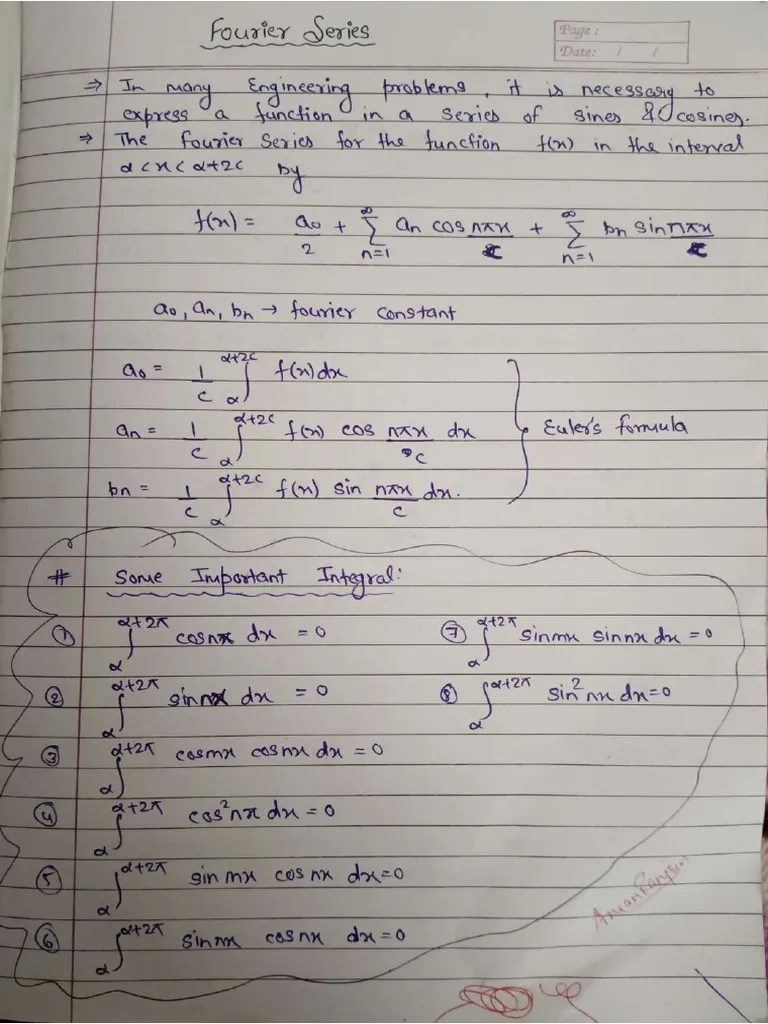 Fourier Series
Page :
Date: / /
⇒ In many Engineering problems, it is necessary to
express a function in a series of sines & cosines.
⇒ The fourier Series for the function f(x) in the interval
α<x<α+2c by
f(x) = a0/2 + ∑_{n=1}^{∞} an cos nπx/c + ∑_{n=1}^{∞} bn sin nπx/c
a0, an, bn → fourier constant
a0 = 1/c ∫_{α}^{α+2c} f(x)dx
an = 1/c ∫_{α}^{α+2c} f(x) cos nπx/c dx
Euler's formula
bn = 1/c ∫_{α}^{α+2c} f(x) sin nπx/c dx.
# Some Important Integral:
① ∫_{α}^{α+2π} cosnx dx = 0
② ∫_{α}^{α+2π} sinnx dx = 0
③ ∫_{α}^{α+2π} cosmx cosnx dx = 0
④ ∫_{α}^{α+2π} cos²nx dx = 0
⑤ ∫_{α}^{α+2π} sin mx cos nx dx=0
⑥ ∫_{α}^{α+2π} sinnx cosnx dx=0
⑦ ∫_{α}^{α+2π} sinmx sinnx dx=0
⑧ ∫_{α}^{α+2π} sin²nx dx=0